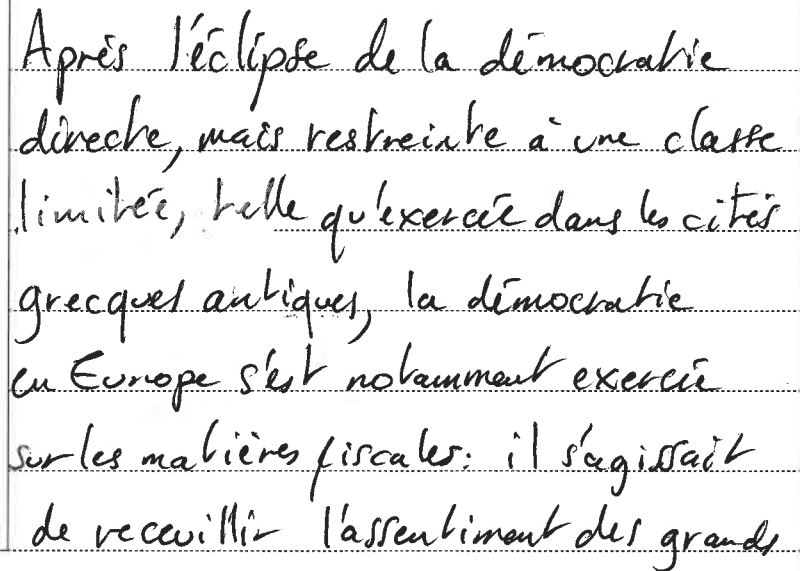 Après l'éclipse de la démocratie
directe, mais restreinte à une classe
limitée, telle qu'exercée dans les cités
grecques antiques, la démocratie
en Europe s'est notamment exercée
sur les matières fiscales: il s'agissait
de receuillir l'assentiment des grands